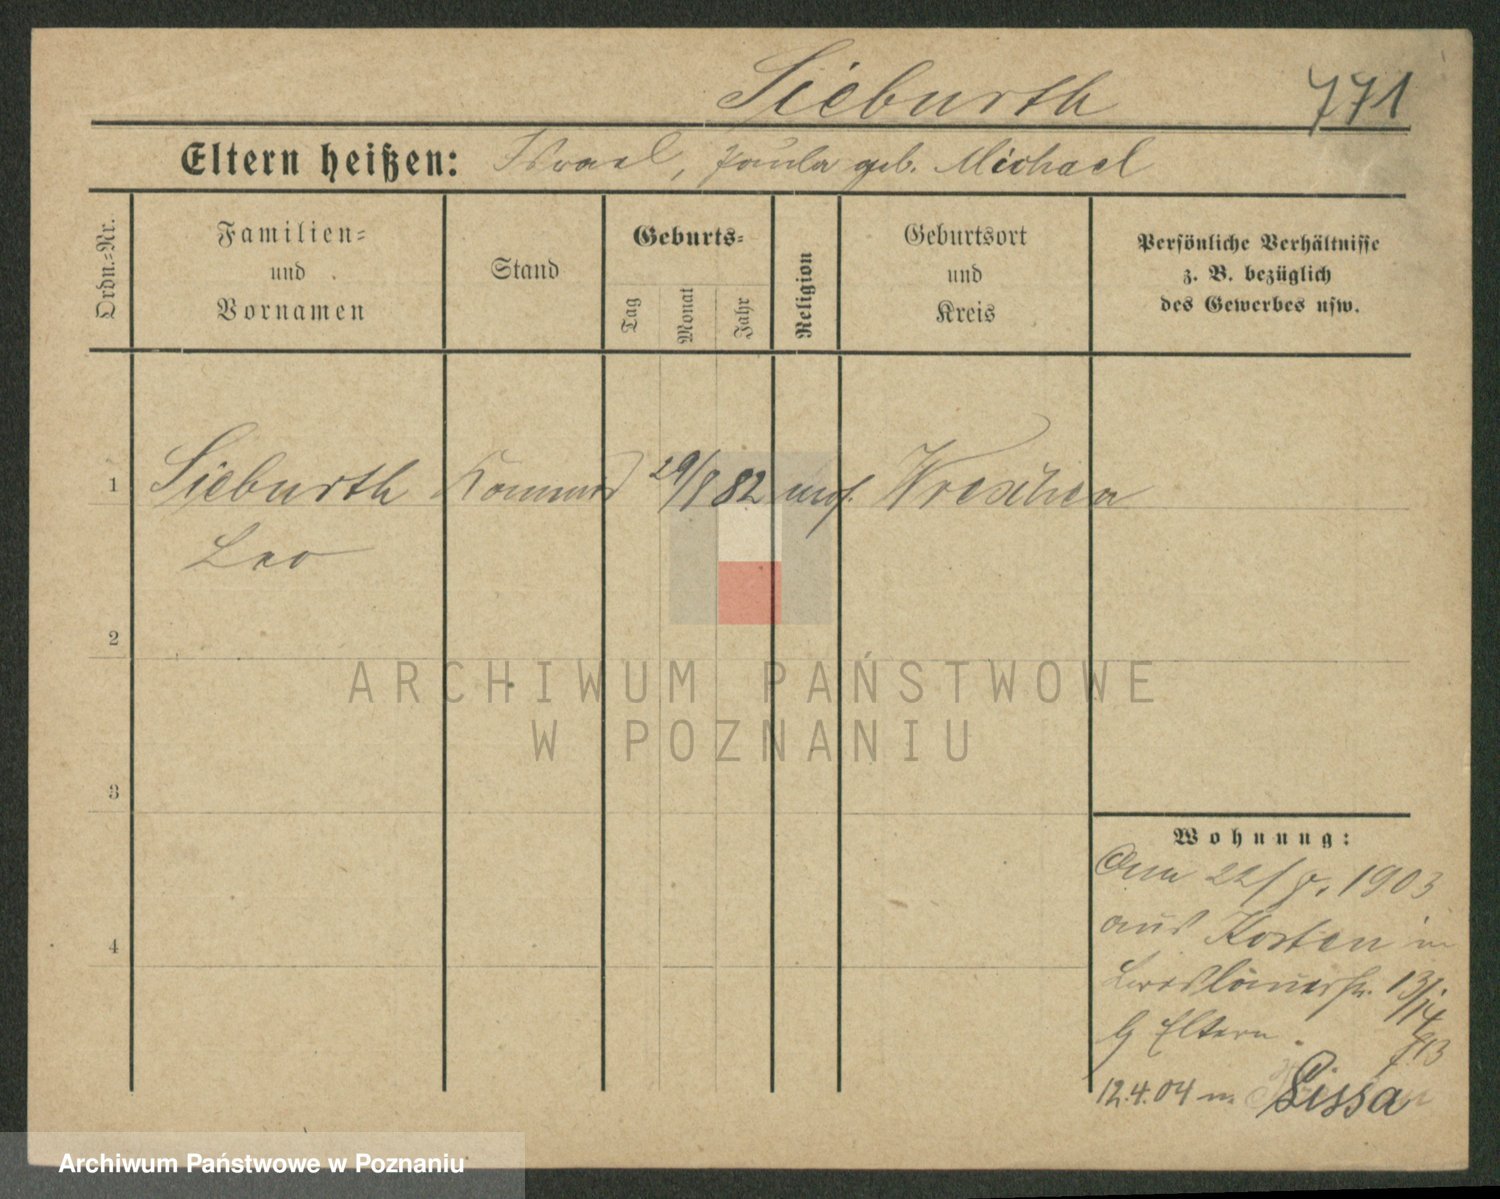 Sieburth 771
Eltern heißen: Israel, Paula geb. Michael
Ordn.-Nr.
Familien-
und
Vornamen
Stand
Geburts-
Tag
Monat
Jahr
Religion
Geburtsort
und
Kreis
Persönliche Verhältnisse
z. B. bezüglich
des Gewerbes usw.
1 Sieburth 29/8 82 mos. Wreschen
Leo
2
3
4
Wohnung:
1903
aus Kosten in
Breslauerstr. 13/14
Eltern
12.4.04 n. Lissa
ARCHIWUM PAŃSTWOWE
W POZNANIU
Archiwum Państwowe w Poznaniu